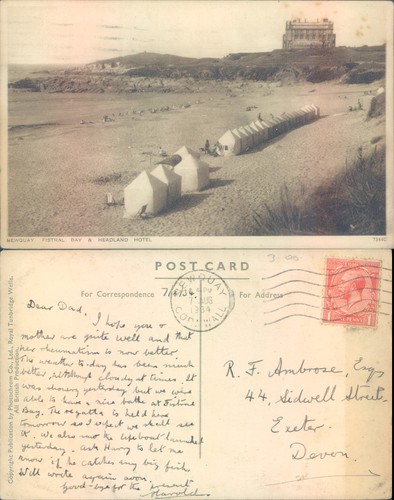 NEWQUAY. FISTRAL BAY & HEADLAND HOTEL
POST CARD
For Correspondence
For Address
7/8/34
NEWQUAY
AUG
1934
CORNWALL
Copyright Publication by Photochrom Co., Ltd., Royal Tunbridge Wells.
All British Production.
Dear Dad,
I hope you &
mother are quite well and that
her rheumatism is now better.
The weather to-day has been much
better, although cloudy at times. It
was showery yesterday but we were
able to have a nice bathe at Fistral
Bay. The regatta is held here
tomorrow so I expect we shall see
it. We also saw the lifeboat launched
yesterday. Ask Harry to let me
know if he catches any big fish.
Will write again soon.
Good-bye for the present
Harold
R. F. Ambrose, Esq
44, Sidwell Street,
Exeter.
Devon.